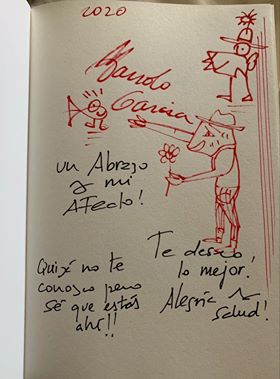 2020
Garcia
un Abrazo
y mi
AFecto!
Te deseo
lo mejor!
Alegría
salud!
Quizá no te
conozco pero
sé que estás
ahí!!